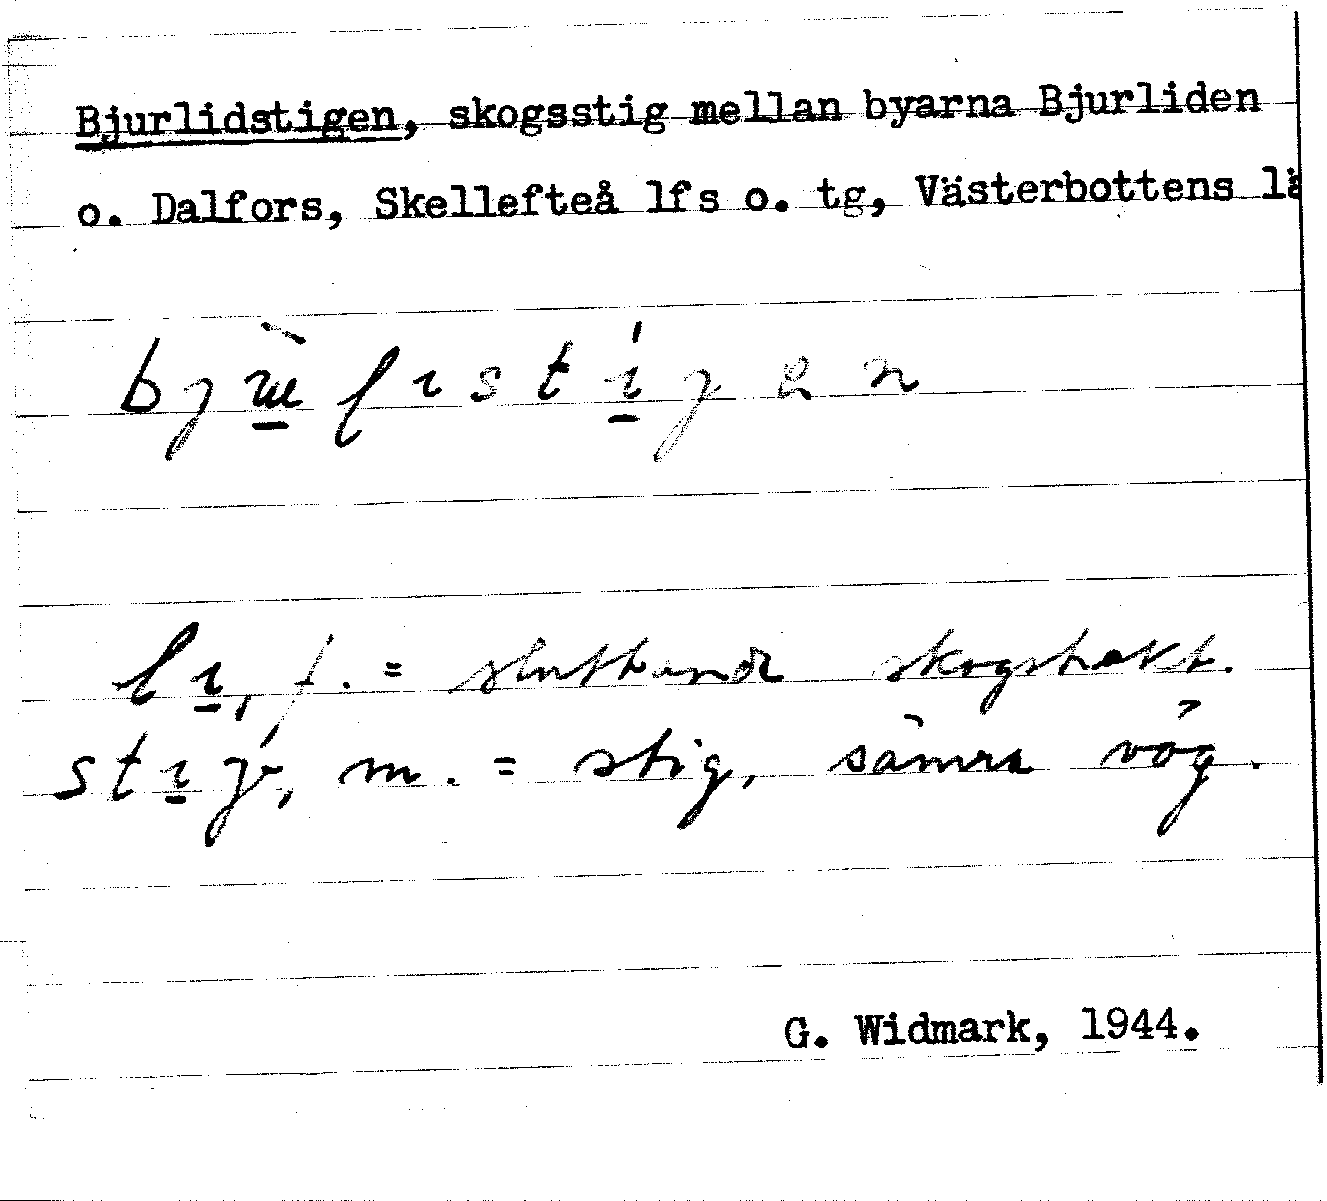 Bjurlidstigen, skogsstig mellan byarna Bjurliden
o. Dalfors, Skellefteå lfs o. tg, Västerbottens lä
lı, f. = sluttande skogstrakt.
stıg, m. = stig, sämre väg.
G. Widmark, 1944.